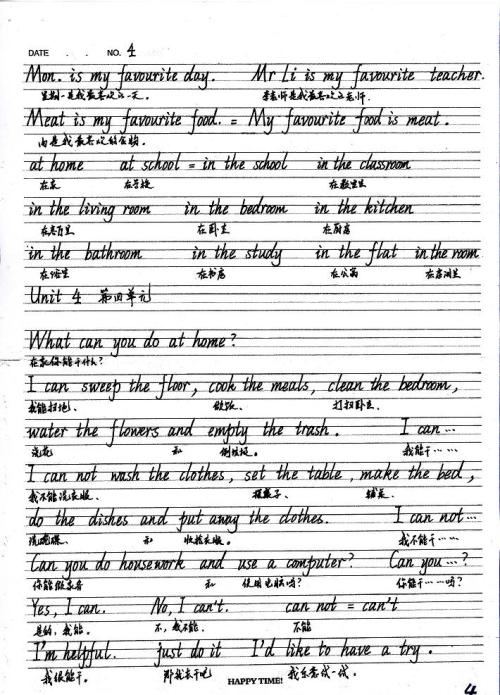 DATE . . NO. 4
Mon. is my favourite day. Mr Li is my favourite teacher.
星期一是我最喜欢的一天。 李老师是我最喜欢的老师.
Meat is my favourite food. = My favourite food is meat.
肉是我最喜欢的食物。
at home at school = in the school in the classroom
在家 在学校 在教室里
in the living room in the bedroom in the kitchen
在卧室 在厨房
in the bathroom in the study in the flat in the room
在浴室 在书房 在公寓 在房间里
Unit 4 第四单元
What can you do at home?
在家你能干什么?
I can sweep the floor, cook the meals, clean the bedroom,
我能扫地、 做饭、 打扫卧室、
water the flowers and empty the trash. I can …
浇花 和 倒垃圾。 我能干……
I can not wash the clothes, set the table, make the bed,
我不能洗衣服、 摆桌子、 铺床、
do the dishes and put away the clothes. I can not…
洗碗碟、 和 收拾衣服。 我不能干……
Can you do housework and use a computer? Can you …?
你能做家务 和 使用电脑吗? 你能干……吗?
Yes, I can. No, I can't. can not = can't
是的,我能。 不,我不能. 不能
I'm helpful. just do it I'd like to have a try.
我很能干。 那就去干吧 我乐意试一试。
HAPPY TIME!
4